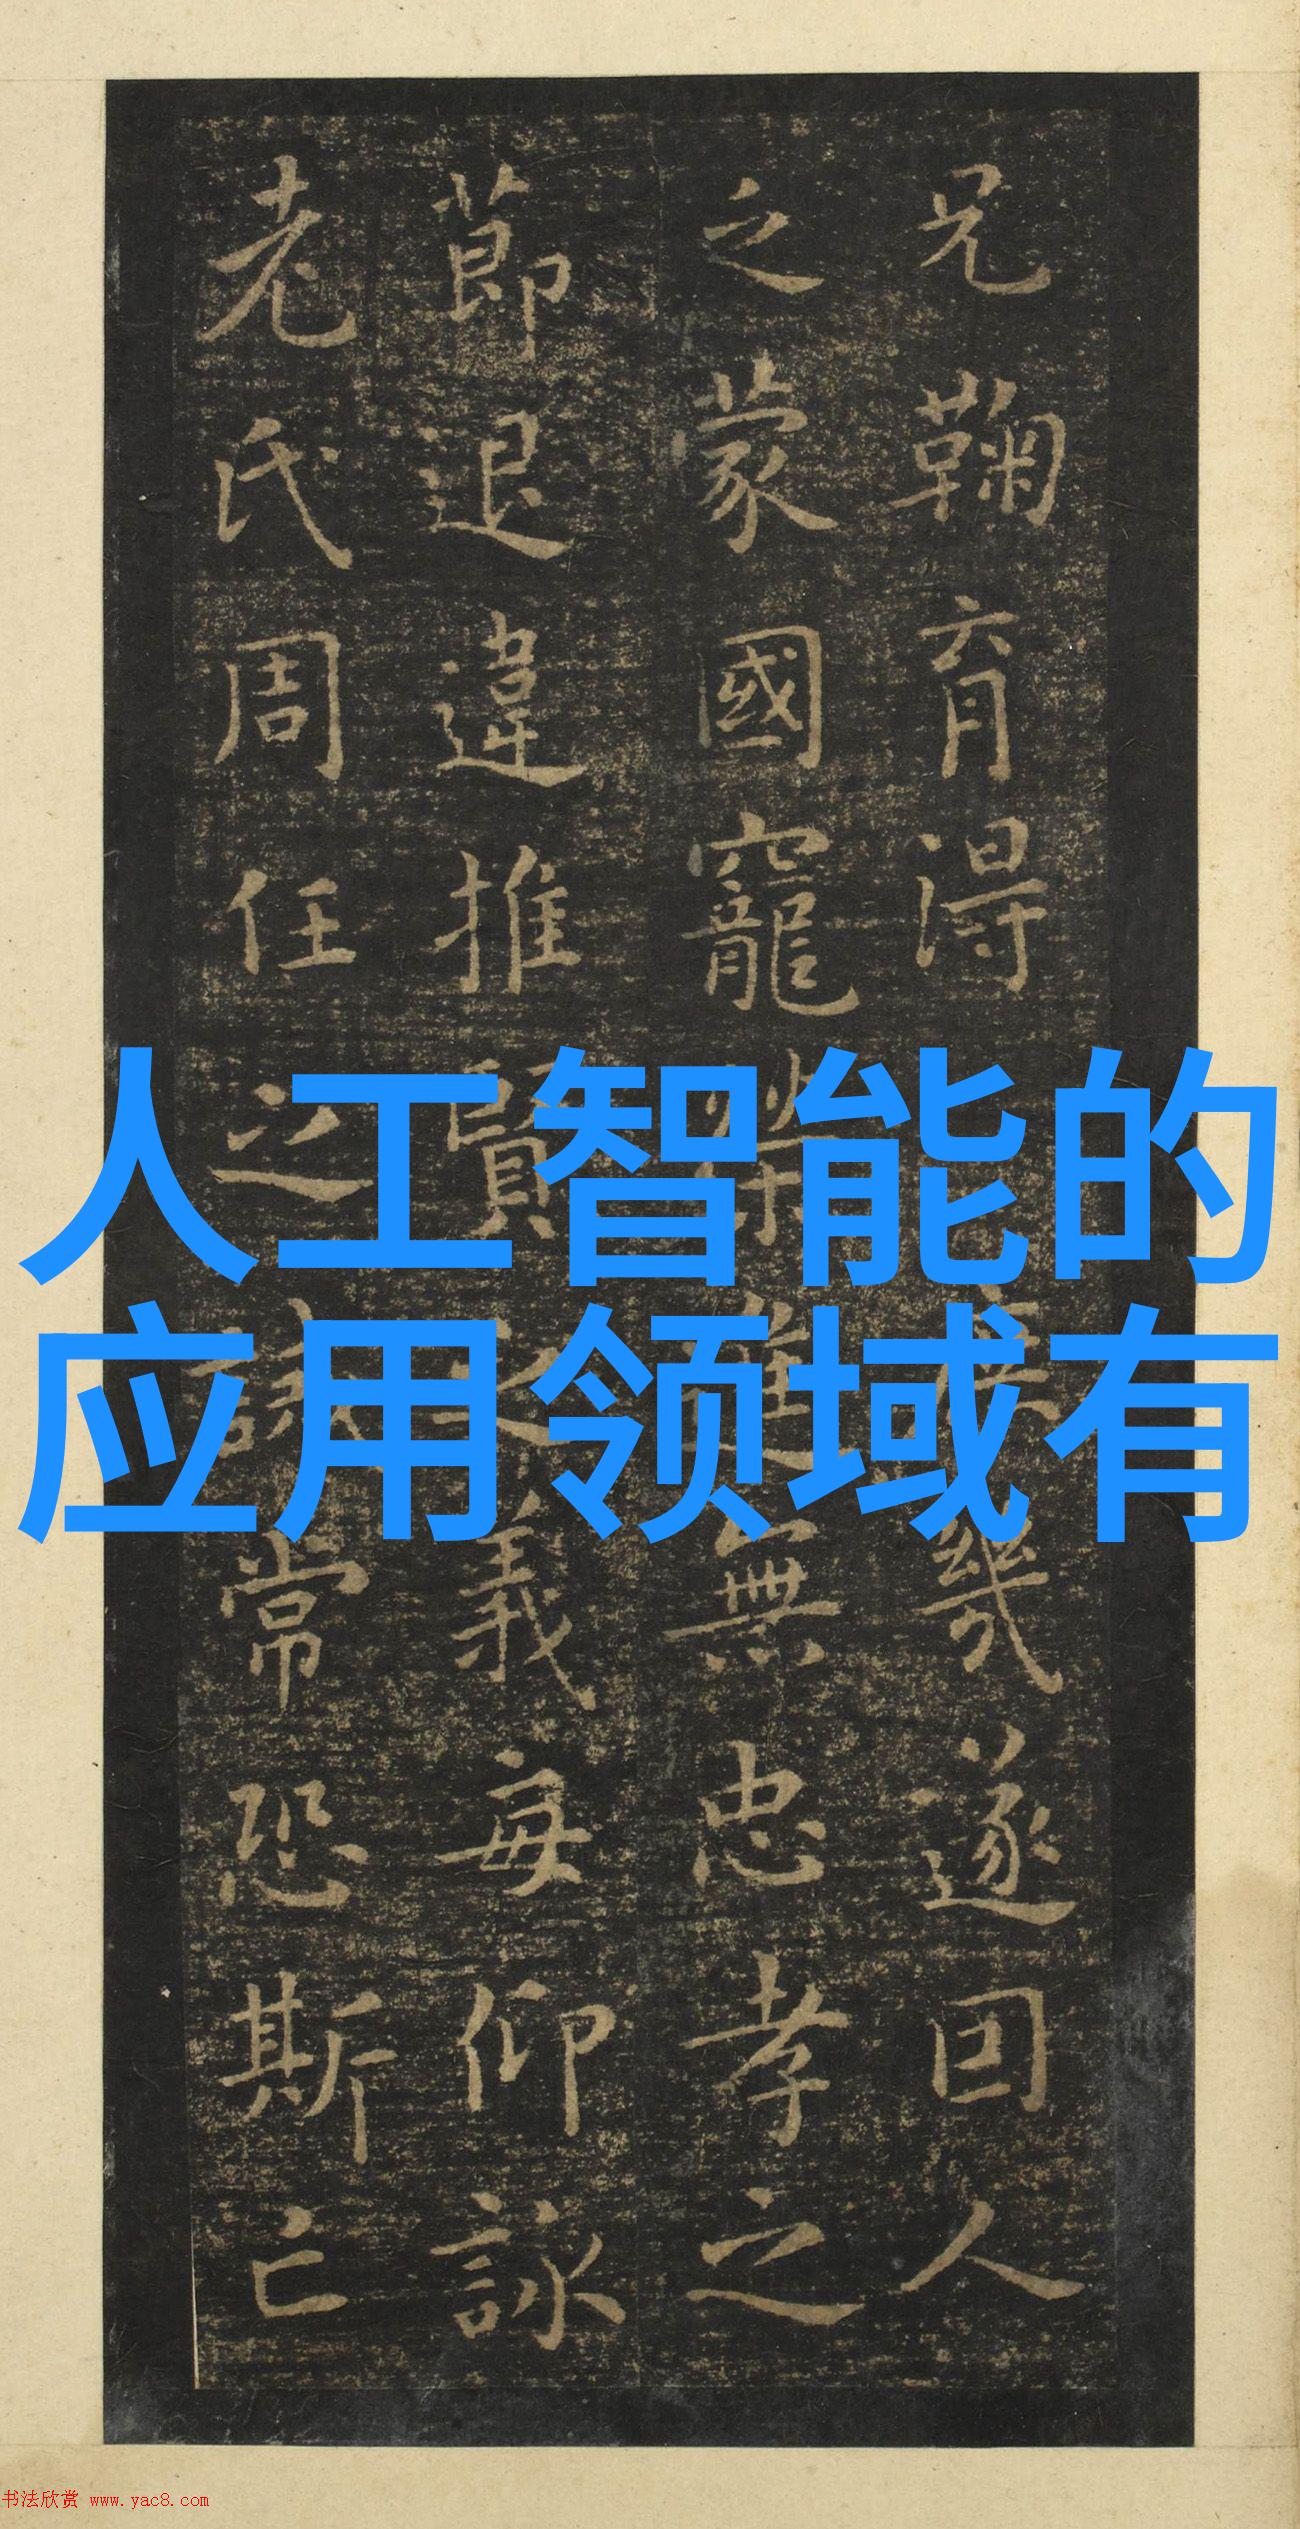 兄鞠育得庶幾遂因人
乏蒙國寵榮進無忠孝之
節退違推賢之義每仰詠
老氏周任之誡常恐斯亡
人工智能的
应用领域有
书法欣赏 www.yac8.com